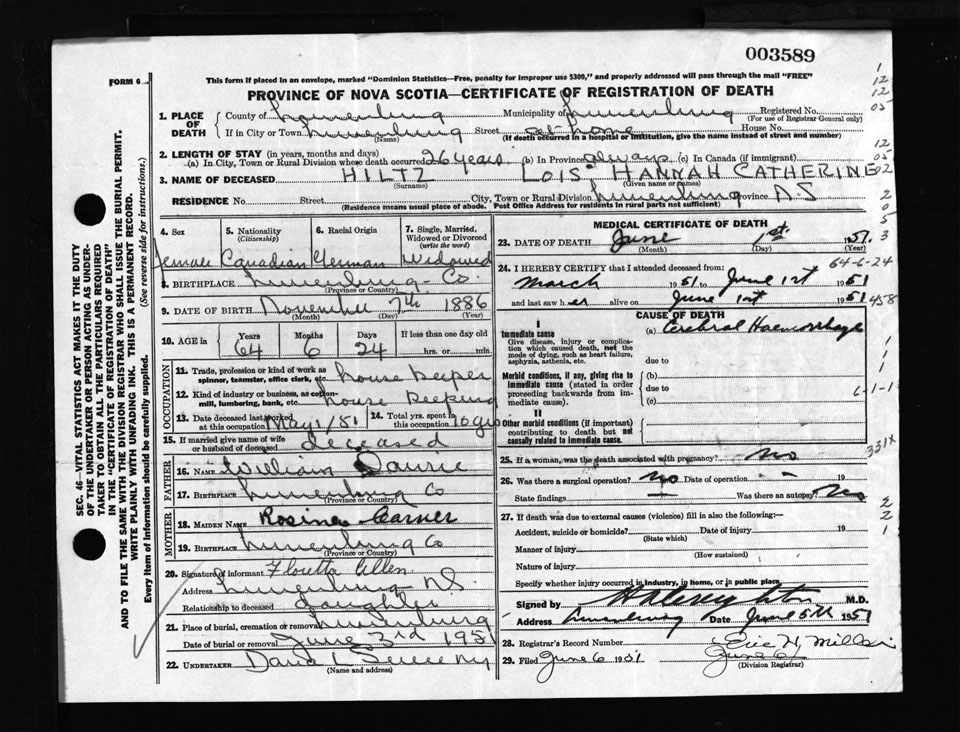 003589
FORM 6
This form if placed in an envelope, marked "Dominion Statistics—Free, penalty for improper use $300," and properly addressed will pass through the mail "FREE"
PROVINCE OF NOVA SCOTIA—CERTIFICATE OF REGISTRATION OF DEATH
1. PLACE OF DEATH County of Lunenburg Municipality of Lunenburg Registered No.
(For use of Registrar General only)
If in City or Town Lunenburg Street at home House No.
(Name) (If death occurred in a hospital or institution, give the name instead of street and number)
2. LENGTH OF STAY (in years, months and days)
(a) In City, Town or Rural Division where death occurred 26 years (b) In Province always (c) In Canada (if immigrant)
3. NAME OF DECEASED HILTZ LOIS HANNAH CATHERINE
(Surname) (Given name or names)
RESIDENCE No. Street City, Town or Rural Division Lunenburg Province N S
(Residence means usual place of abode. Post Office Address for residents in rural parts not sufficient)
4. Sex 5. Nationality (Citizenship) 6. Racial Origin 7. Single, Married, Widowed or Divorced (write the word)
Female Canadian German Widowed
8. BIRTHPLACE Lunenburg Co.
(Province or Country)
9. DATE OF BIRTH November 7th 1886
(Month) (Day) (Year)
10. AGE in Years Months Days If less than one day old
64 6 24 hrs. or min.
OCCUPATION
11. Trade, profession or kind of work as spinner, teamster, office clerk, etc. house keeper
12. Kind of industry or business, as cotton-mill, lumbering, bank, etc. house keeping
13. Date deceased last worked at this occupation May 1/51 14. Total yrs. spent in this occupation
15. If married give name of wife or husband of deceased deceased
FATHER
16. NAME William
17. BIRTHPLACE Lunenburg Co
(Province or Country)
MOTHER
18. MAIDEN NAME Rosina
19. BIRTHPLACE Lunenburg Co
(Province or Country)
20. Signature of informant Floretta Allen
Address Lunenburg N.S.
Relationship to deceased daughter
21. Place of burial, cremation or removal Lunenburg
Date of burial or removal June 3rd 1951
22. UNDERTAKER
(Name and address)
MEDICAL CERTIFICATE OF DEATH
23. DATE OF DEATH June 1st 1951
(Month) (Day) (Year)
64-6-24
24. I HEREBY CERTIFY that I attended deceased from:
March 1951 to June 1st 1951
and last saw her alive on June 1st 1951
CAUSE OF DEATH
I
Immediate cause (a) Cerebral Haemorrhage
Give disease, injury or complication which caused death, not the mode of dying, such as heart failure, asphyxia, asthenia, etc.
due to
Morbid conditions, if any, giving rise to immediate cause (stated in order proceeding backwards from immediate cause).
(b)
due to
(c)
II
Other morbid conditions (if important) contributing to death but not causally related to immediate cause.
331X
25. If a woman, was the death associated with pregnancy? No
26. Was there a surgical operation? No Date of operation 19
State findings Was there an autopsy? No
27. If death was due to external causes (violence) fill in also the following:—
Accident, suicide or homicide? Date of injury 19
(State which)
Manner of injury
(How sustained)
Nature of injury
Specify whether injury occurred in industry, in home, or in public place.
Signed by M.D.
Address Lunenburg Date June 5th 1951
28. Registrar's Record Number
29. Filed June 6 1951 Eric H.
June 6
(Division Registrar)
SEC. 46—VITAL STATISTICS ACT MAKES IT THE DUTY
OF THE UNDERTAKER OR PERSON ACTING AS UNDERTAKER TO OBTAIN ALL THE PARTICULARS REQUIRED
IN THE "CERTIFICATE OF REGISTRATION OF DEATH"
AND TO FILE THE SAME WITH THE DIVISION REGISTRAR WHO SHALL ISSUE THE BURIAL PERMIT.
WRITE PLAINLY WITH UNFADING INK. THIS IS A PERMANENT RECORD.
Every item of information should be carefully supplied. (See reverse side for instructions.)